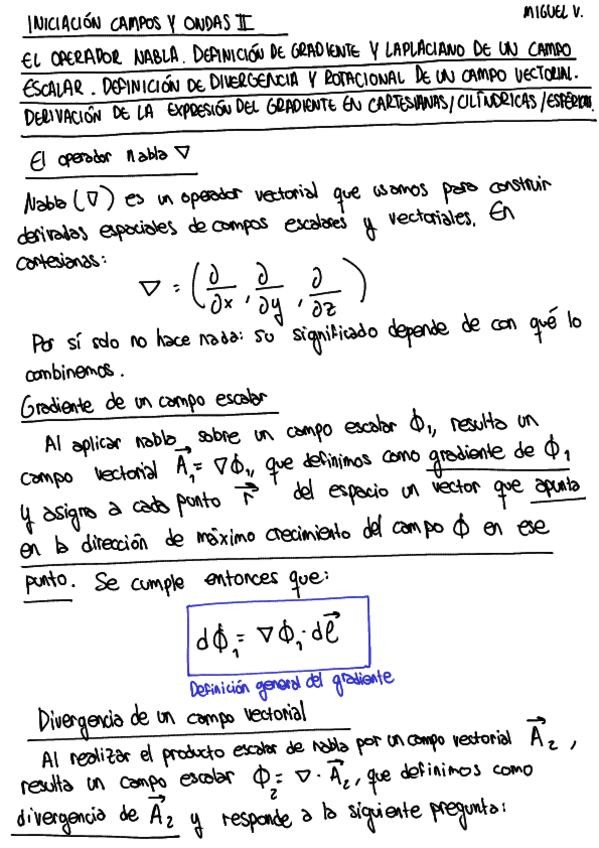 INICIACIÓN CAMPOS Y ONDAS II
MIGUEL V.
EL OPERADOR NABLA. DEFINICIÓN DE GRADIENTE Y LAPLACIANO DE UN CAMPO
ESCALAR. DEFINICIÓN DE DIVERGENCIA Y ROTACIONAL DE UN CAMPO VECTORIAL.
DERIVACIÓN DE LA EXPRESIÓN DEL GRADIENTE EN CARTESIANAS/CILÍNDRICAS/ESFÉRICAS.
El operador nabla ∇
Nabla (∇) es un operador vectorial que usamos para construir
derivadas espaciales de campos escalares y vectoriales. En
cartesianas:
∇ = (∂/∂x, ∂/∂y, ∂/∂z)
Por sí solo no hace nada: su significado depende de con qué lo
combinemos.
Gradiente de un campo escalar
Al aplicar nabla sobre un campo escalar ϕ₁, resulta un
campo vectorial A⃗₁ = ∇ϕ₁, que definimos como gradiente de ϕ₁
y asigna a cada punto r⃗ del espacio un vector que apunta
en la dirección de máximo crecimiento del campo ϕ en ese
punto. Se cumple entonces que:
dϕ₁ = ∇ϕ₁·dℓ⃗
Definición general del gradiente
Divergencia de un campo vectorial
Al realizar el producto escalar de nabla por un campo vectorial A⃗₂,
resulta un campo escalar ϕ₂ = ∇·A⃗₂, que definimos como
divergencia de A⃗₂ y responde a la siguiente pregunta: